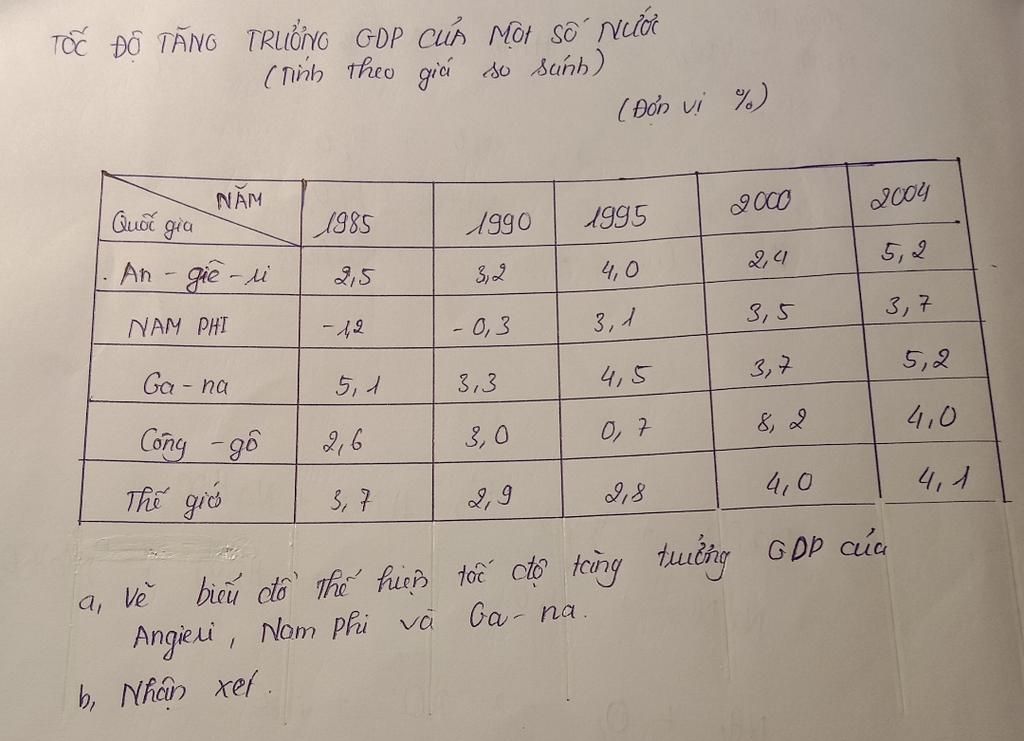 TỐC ĐỘ TĂNG TRƯỞNG GDP CỦA MỘT SỐ NƯỚC
(Tính theo giá so sánh)
(Đơn vị %)
NĂM
Quốc gia 1985 1990 1995 2000 2004
An - giê - ri 2,5 3,2 4,0 2,4 5,2
NAM PHI -1,2 -0,3 3,1 3,5 3,7
Ga - na 5,1 3,3 4,5 3,7 5,2
Công - gô 2,6 3,0 0,7 8,2 4,0
Thế giớ 3,7 2,9 2,8 4,0 4,1
a, Vẽ biểu đồ thể hiện tốc độ tăng trưởng GDP của
Angieri, Nam Phi và Ga - na.
b, Nhận xét.